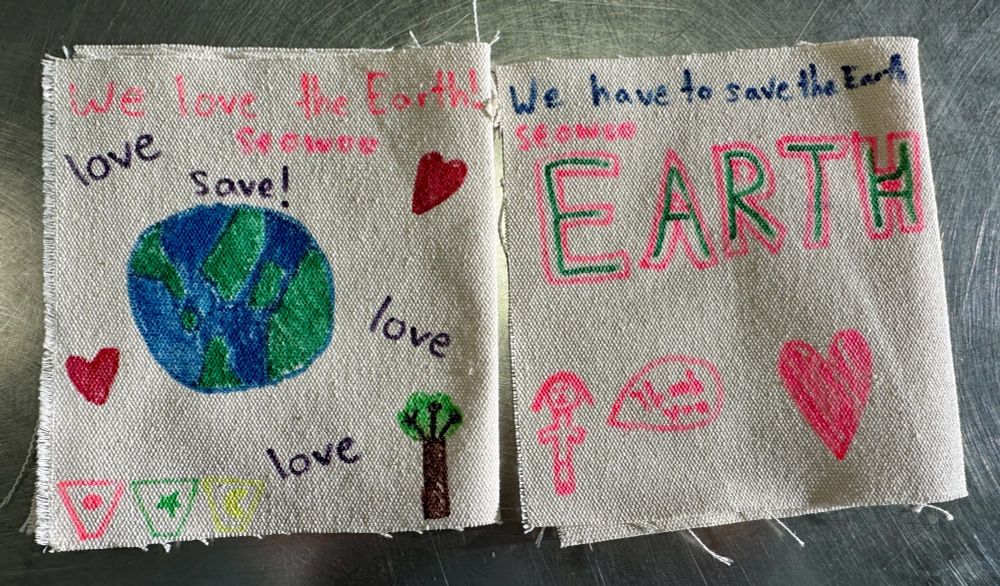 We love the Earth!
seowoo
love
save!
love
love
We have to save the Earth
seowoo
EARTH
Thank
you